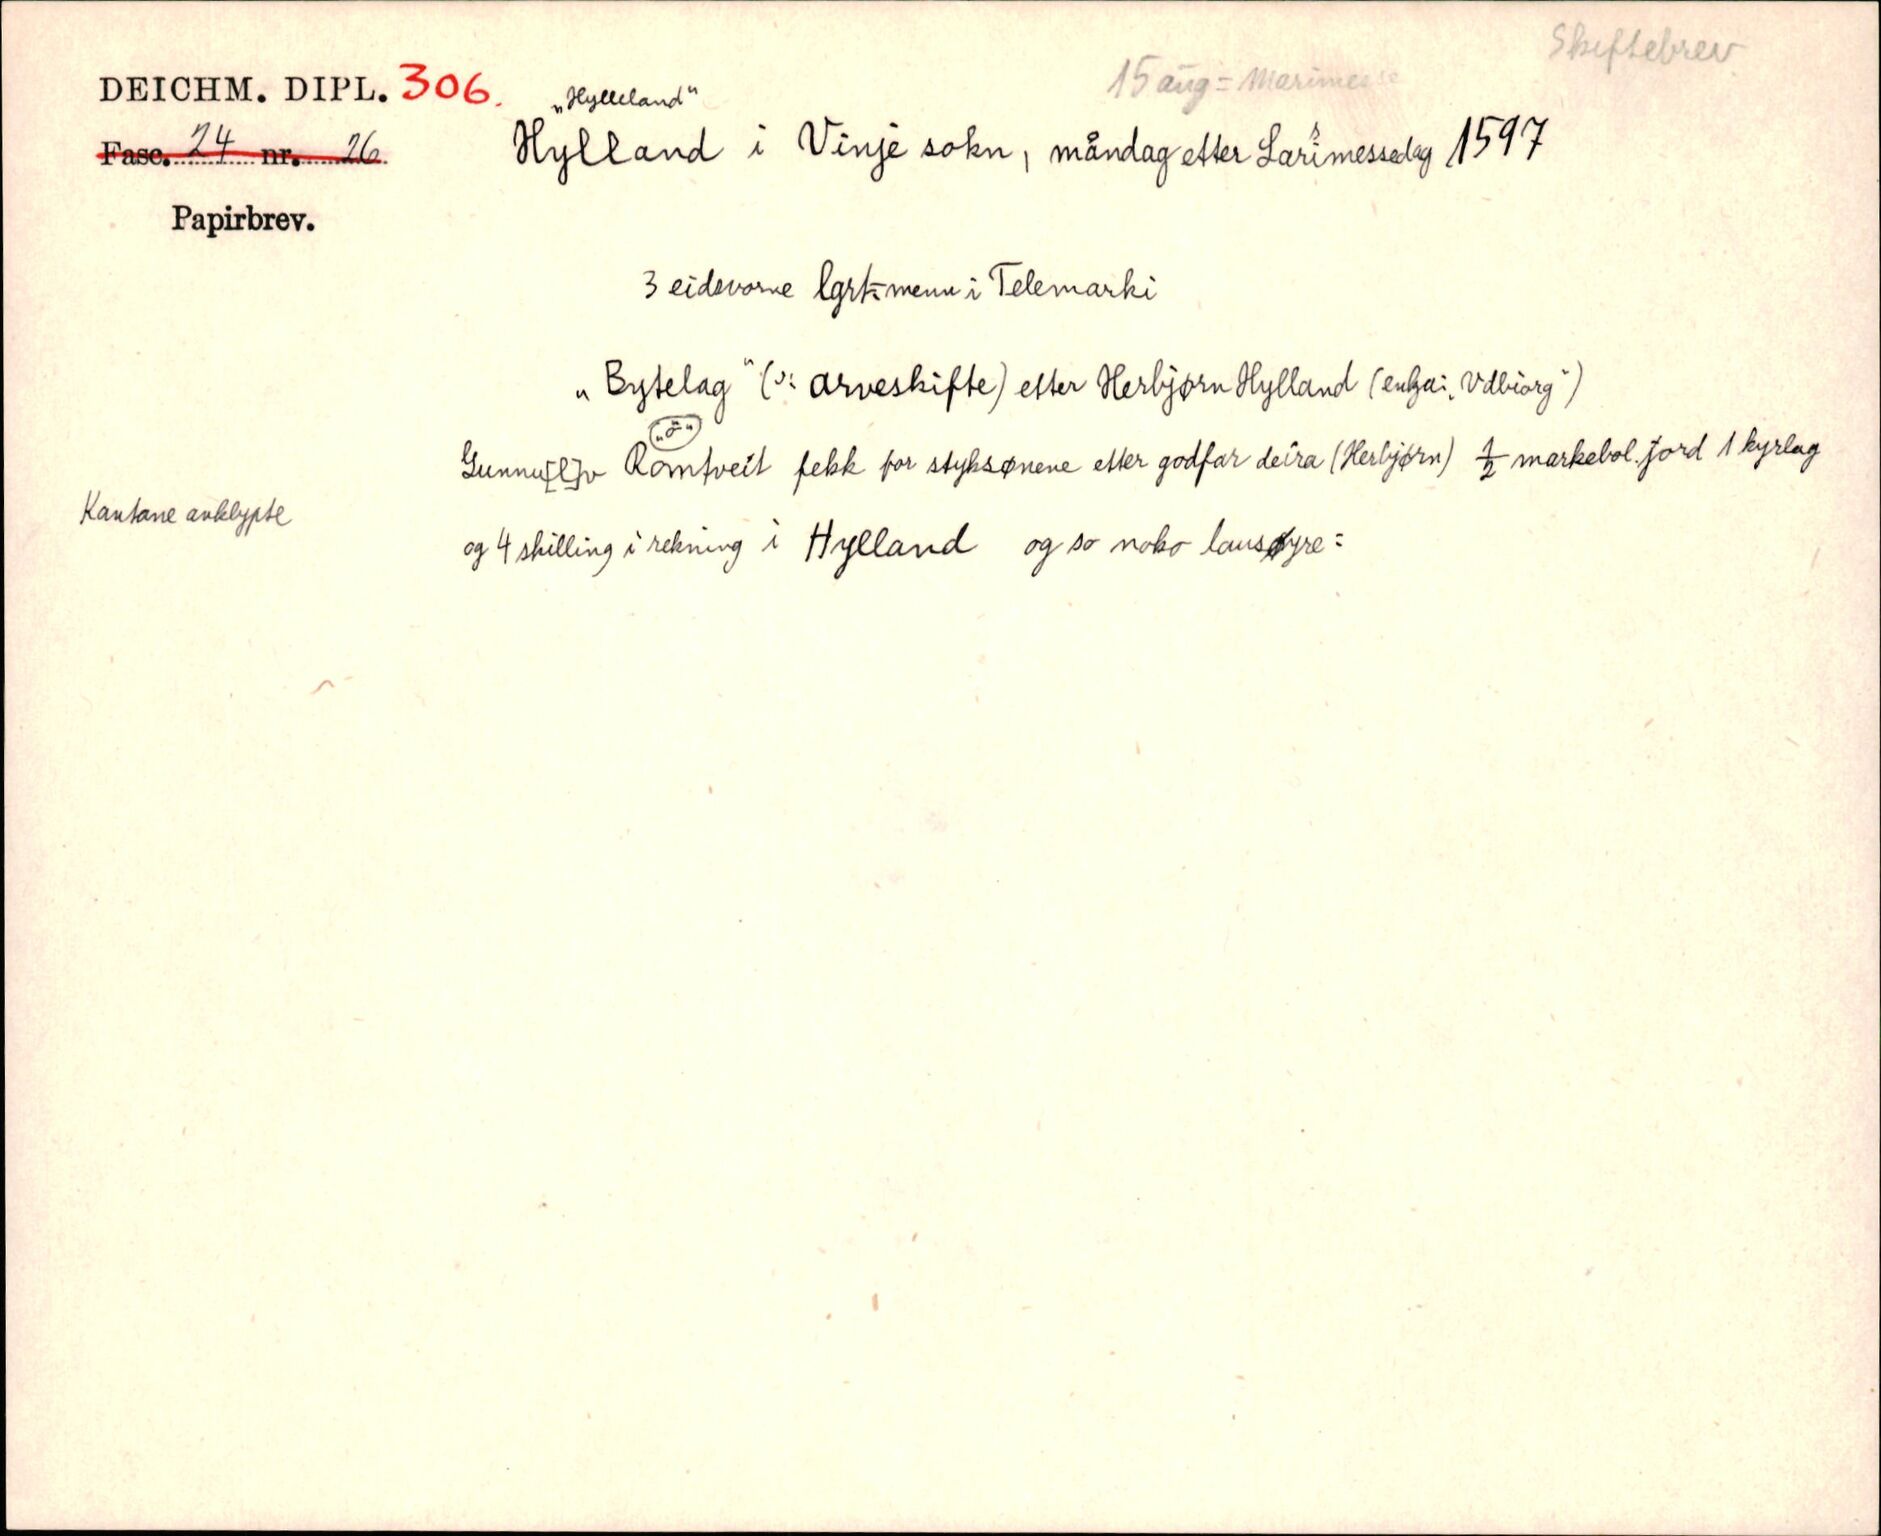 Skiftebrev
15 aug = Marimesse
DEICHM. DIPL. 306.
„Hylleland“
Fasc. 24 nr. 26
Hylland i Vinje sokn, måndag etter Larimessedag 1597
Papirbrev.
3 eidsvorne lgrt-menn i Telemarki
„Bytelag“ (ɔ: arveskifte) etter Herbjørn Hylland (enkja: „Vdbiorg“)
„o“
Gunnu[l]v Romtveit fekk for styksønene etter godfar deira (Herbjørn) 1/2 markebol jord 1 kyrlag
Kantane avklypte
og 4 skilling i rekning i Hylland og so noko lausøyre: